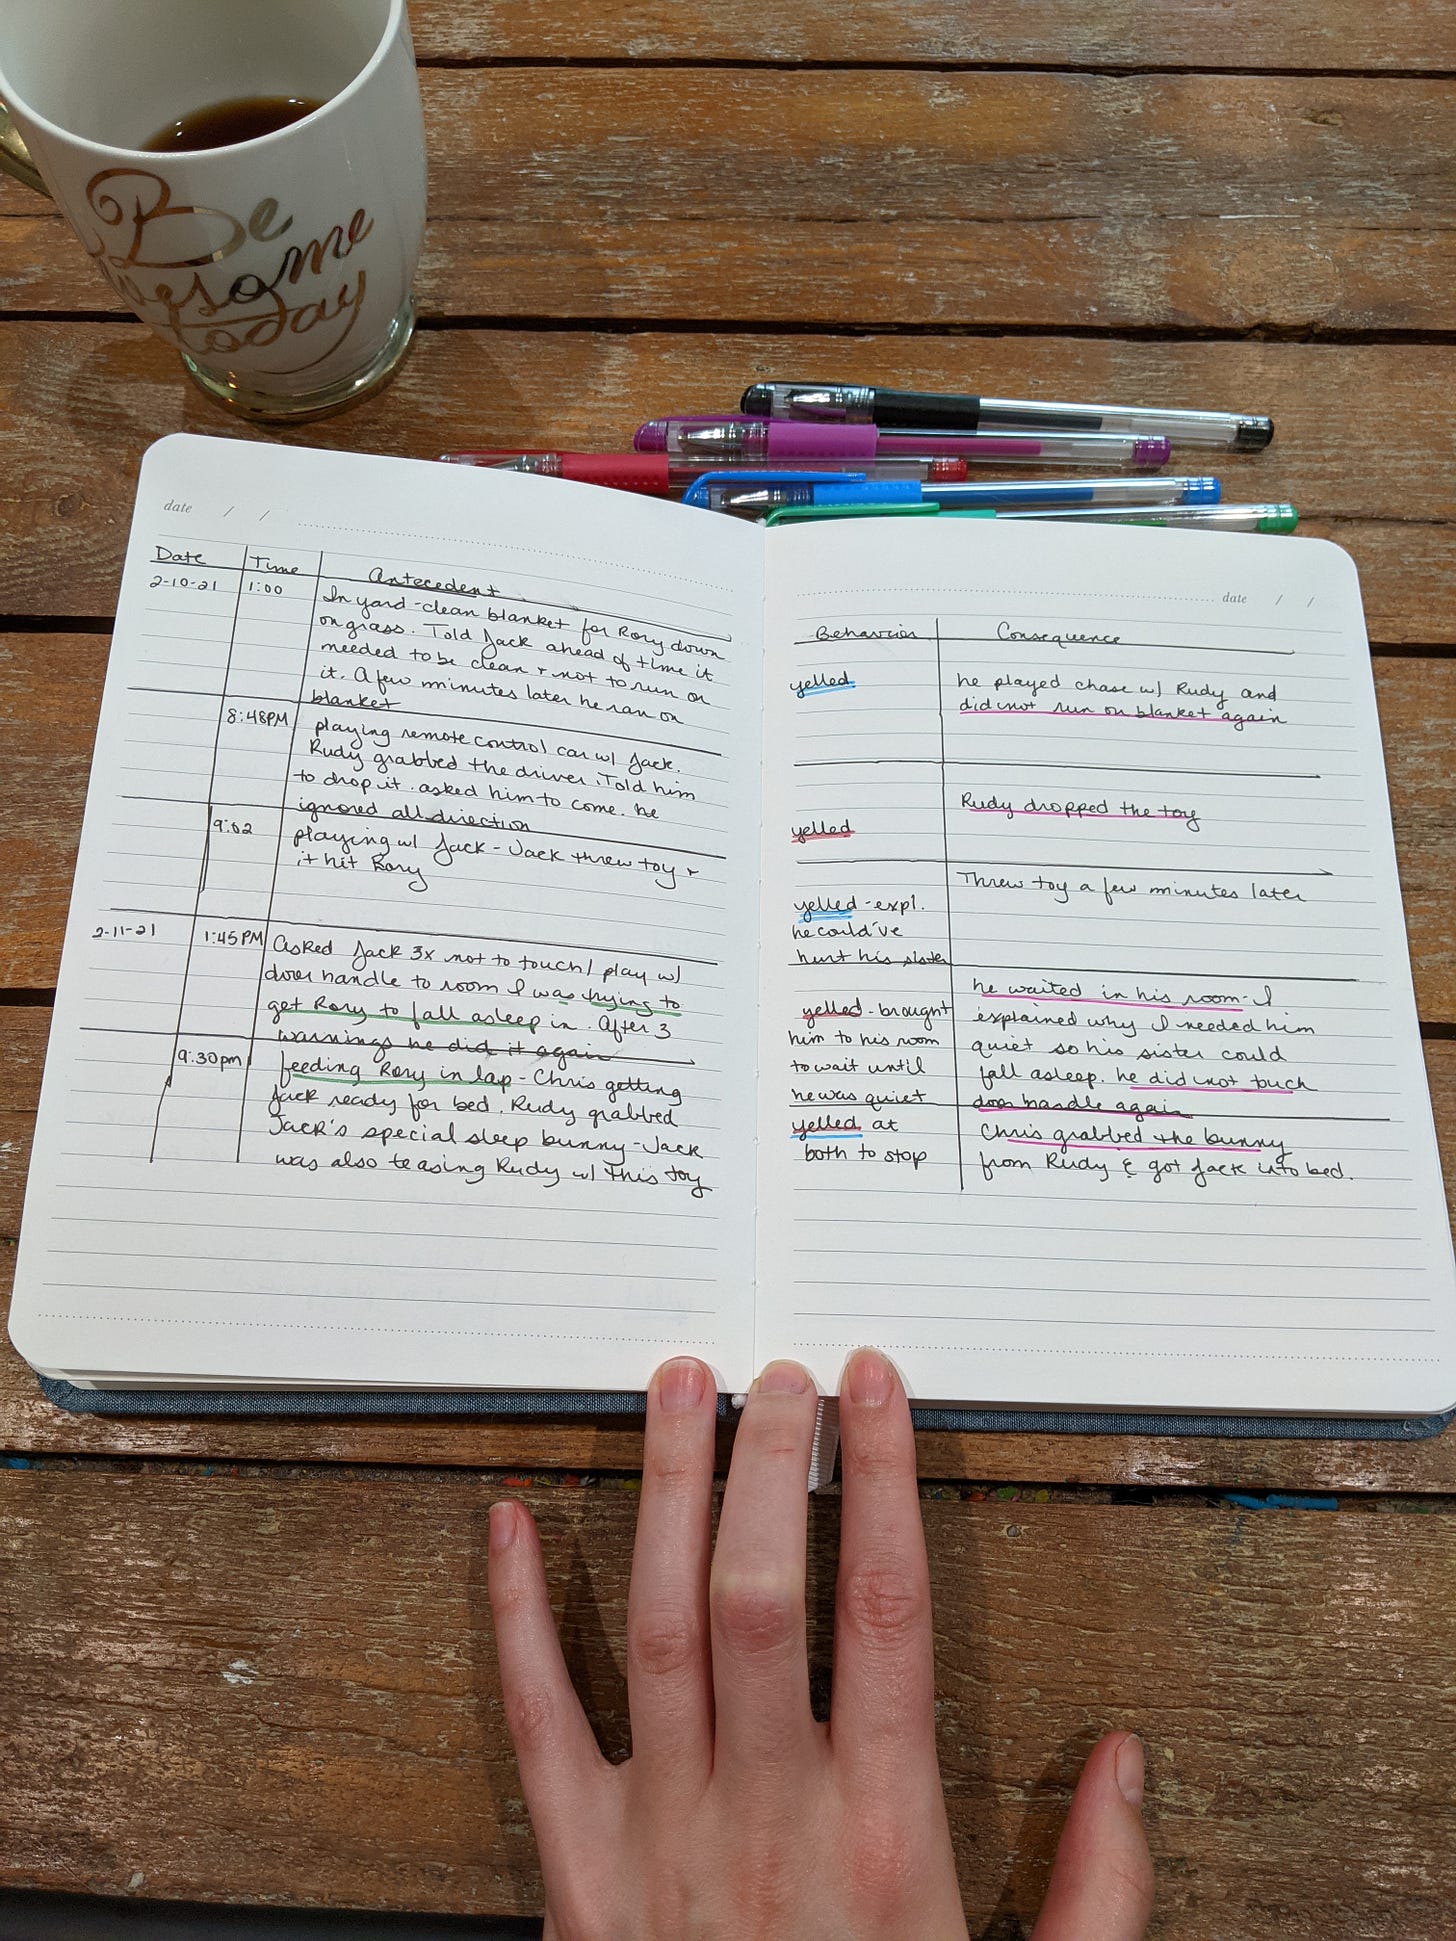 Be
awesome
today
date / /
Date Time Antecedent
2-10-21 1:00 In yard - clean blanket for Rory down
on grass. Told Jack ahead of time it
needed to be clean + not to run on
it. A few minutes later he ran on
blanket
8:48PM playing remote control car w/ Jack.
Rudy grabbed the driver. Told him
to drop it. asked him to come. he
ignored all direction
9:02 playing w/ Jack - Jack threw toy +
it hit Rory
2-11-21 1:45PM Asked Jack 3x not to touch/ play w/
door handle to room I was trying to
get Rory to fall asleep in. After 3
warnings he did it again
9:30pm feeding Rory in lap - Chris getting
Jack ready for bed. Rudy grabbed
Jack's special sleep bunny - Jack
was also teasing Rudy w/ this toy
date / /
Behavior Consequence
yelled he played chase w/ Rudy and
did not run on blanket again
Rudy dropped the toy
yelled
Threw toy a few minutes later
yelled - expl.
he could've
hurt his sister
he waited in his room - I
yelled - brought explained why I needed him
him to his room quiet so his sister could
to wait until fall asleep. he did not touch
he was quiet door handle again
yelled at Chris grabbed the bunny
both to stop from Rudy & got Jack into bed.